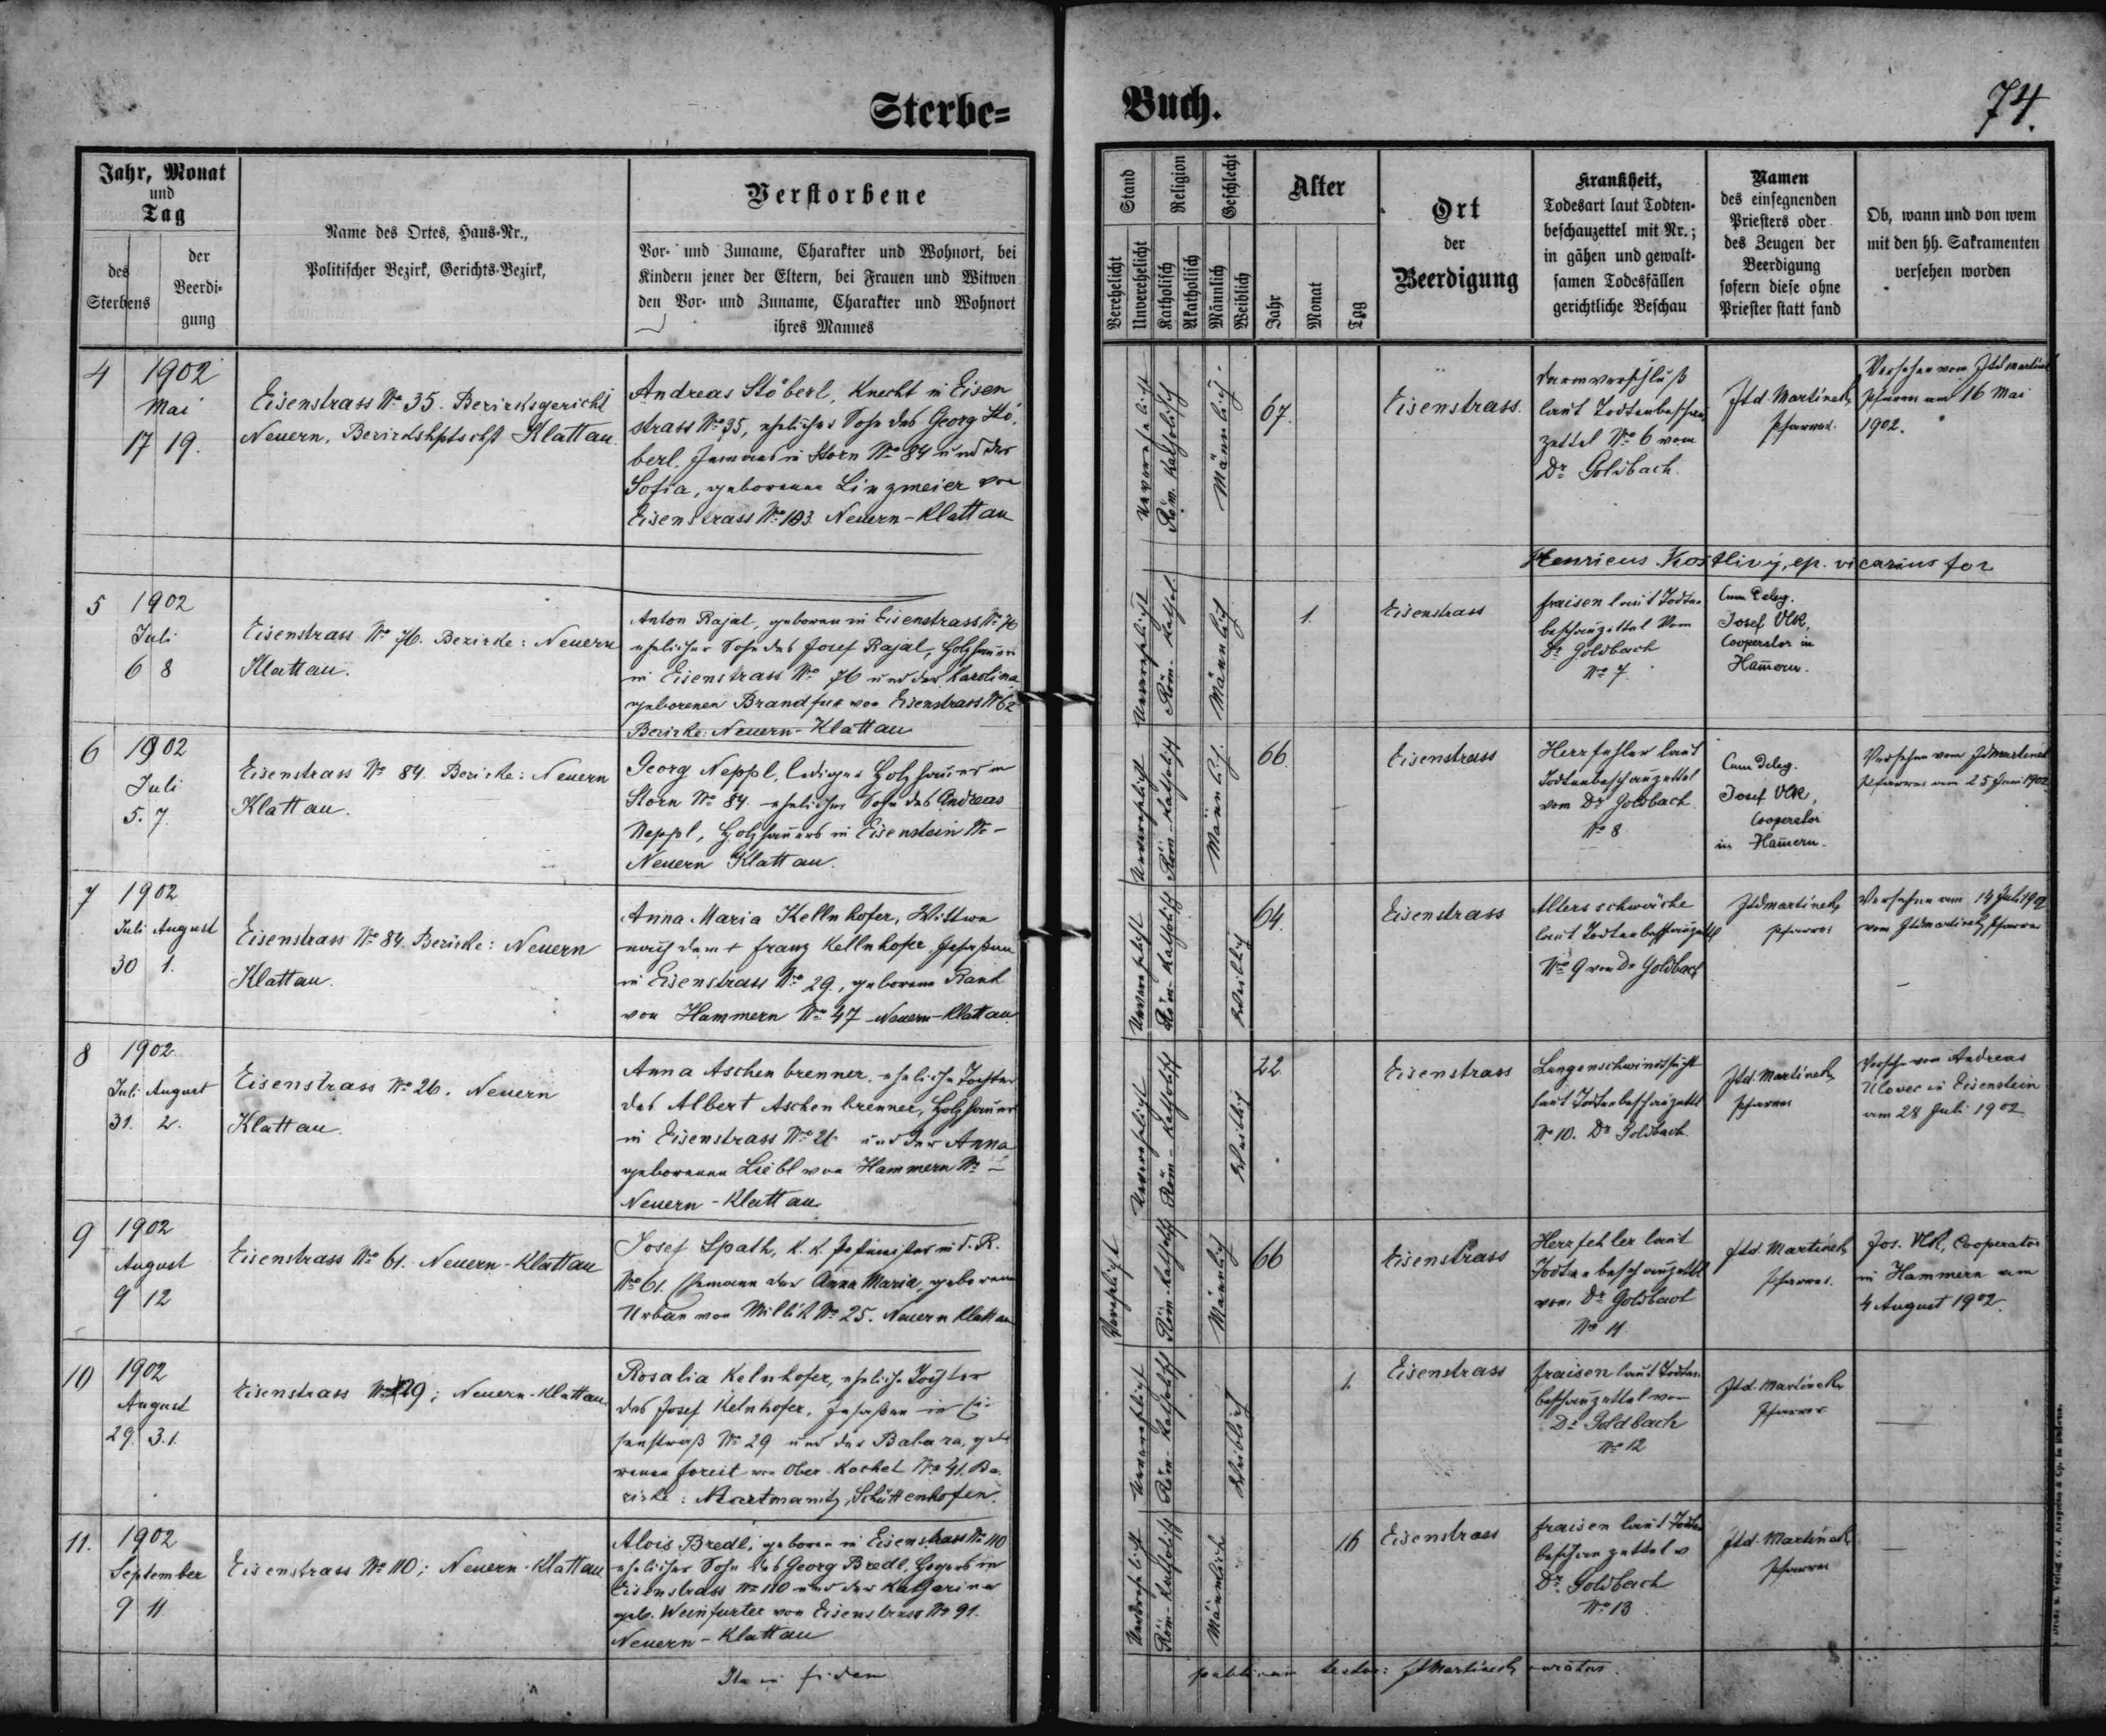 Sterbe=
Buch.
74.
Jahr, Monat
und
Tag
des
Sterbens
der
Beerdi-
gung
Name des Ortes, Haus-Nr.,
Politischer Bezirk, Gerichts-Bezirk,
Verstorbene
Vor- und Zuname, Charakter und Wohnort, bei
Kindern jener der Eltern, bei Frauen und Witwen
den Vor- und Zuname, Charakter und Wohnort
ihres Mannes
Stand
Verehelicht
Unverehelicht
Religion
Katholisch
Akatholisch
Geschlecht
Männlich
Weiblich
Alter
Jahr
Monat
Tag
Ort
der
Beerdigung
Krankheit,
Todesart laut Todten-
beschauzettel mit Nr.;
in gähen und gewalt-
samen Todesfällen
gerichtliche Beschau
Namen
des einsegnenden
Priesters oder
des Zeugen der
Beerdigung
sofern diese ohne
Priester statt fand
Ob, wann und von wem
mit den hh. Sakramenten
versehen worden
4
1902
Mai
17 19.
Eisenstrass No 35. Bezirksgericht
Neuern, Bezirkshptschft Klattau.
Andreas Stöberl, Knecht in Eisen
strass No 35, ehelicher Sohn des Georg Stö,
berl, Inmanns in Storn No 84 und der
Sofia, geborenen Linzmeier von
Eisenstrass No 103. Neuern-Klattau
Unverehelicht
Röm. Katholisch
Männlich.
67.
Eisenstrass.
Darmverschluß
laut Todtenbeschau
zettel No 6 vom
Dr Goldbach.
Jtd. Martínek,
Pfarrer.
Versehen vom Jtd Martínek
Pfarrer am 16 Mai
1902.
Henricus Kostlivý, ep. vicarius for
5
1902
Juli
6 8
Eisenstrass No 76. Bezirke: Neuern
Klattau.
Anton Rajal, geboren in Eisenstrass No 76
ehelicher Sohn des Josef Rajal, Holzhauers
in Eisenstrass No 76 und der Karolina
geborenen Brand von Eisenstrass No 62
Bezirke: Neuern-Klattau
Unverehelicht
Röm. Kathol.
Männlich
1.
Eisenstrass
Fraisen laut Todten
beschauzettel vom
Dr Goldbach
No 7
Cum Deleg.
Josef Vlk,
Cooperator in
Ham̅ern.
6
1902
Juli
5. 7
Eisenstrass No 84. Bezirke: Neuern
Klattau.
Georg Neppl, lediger Holzhauer in
Storn No 84. ehelicher Sohn des Andreas
Neppl, Holzhauers in Eisenstein No -
Neuern Klattau.
Unverehelicht
Röm-Katholisch
Männlich.
66.
Eisenstrass
Herzfehler laut
Todtenbeschauzettel
vom Dr Goldbach.
No 8
Cum Deleg.
Josef Vlk,
Cooperator
in Ham̅ern.
Versehen vom Jtd Martínek
Pfarrer am 25 Juni 1902
7
1902
Juli August
30 1.
Eisenstrass No 84. Bezirke: Neuern
Klattau.
Anna Maria Kellnhofer, Wittwe
nach dem + Franz Kellnhofer Insaßen
in Eisenstrass No 29., geborene Rank
von Hammern No 47 Neuern-Klattau
Unverehelicht
Röm-Katholisch
Weiblich
64.
Eisenstrass
Altersschwäche
laut Todtenbeschauzettl
No 9 von Dr Goldbach
Jtd Martínek,
Pfarrer
Versehen am 19 Juli 1902
vom Jtd Martínek, Pfarrer
8
1902
Juli August
31. 2.
Eisenstrass No 26. Neuern
Klattau.
Anna Aschenbrenner, eheliche Tochter
des Albert Aschenbrenner, Holzhauer
in Eisenstrass No 26 und der Anna
geborenen Liebl von Hammern No -
Neuern-Klattau
Unverehelicht
Röm-Katholisch
Weiblich
22
Eisenstrass
Lungenschwindsucht
laut Todtenbeschauzettl
No 10. Dr Goldbach.
Jtd. Martínek,
Pfarrer
Versehen von Andreas
Úlovec in Eisenstein
am 28 Juli 1902
9
1902
August
9 12
Eisenstrass No 61. Neuern-Klattau
Josef Spath, K. K. in d. R.
No 61. Ehemann der Anna Maria, geborenen
Urban von Millik No 25. Neuern Klattau
Verehelicht
Röm-Katholisch
Männlich
66
Eisenstrass
Herzfehler laut
Todtenbeschauzettl
vom Dr Goldbach
No 11.
Jtd. Martínek,
Pfarrer.
Jos. Vlk, Cooperator
in Hammern am
4 August 1902.
10
1902
August
29. 31.
Eisenstrass No 29; Neuern-Klattau.
Rosalia Kelnhofer, eheliche Tochter
des Josef Kelnhofer, Insaßen in Ei-
senstraß No 29 und der Babara, gebo
renen Foreit von Ober-Kochet No 41. Be-
zirke: Hartmanitz, Schüttenhofen.
Unverehelicht
Röm-Katholisch
Weiblich
1.
Eisenstrass
Fraisen laut Todten-
beschauzettel von
Dr Goldbach
No 12
Jtd. Martínek,
Pfarrer
11.
1902
September
9 11
Eisenstrass No 110; Neuern-Klattau
Alois Bredl, geboren in Eisenstrass No 110
ehelicher Sohn des Georg Bredl, in
Eisenstrass No 110 und der Katharina
geb. Weinfurter von Eisenstrass No 91.
Neuern-Klattau
Unverehelicht
Röm-Katholisch
Männlich
16
Eisenstrass
Fraisen laut Todten
beschauzettel v
Dr. Goldbach
No 13
Jtd. Martínek,
Pfarrer
Ita in fidem
publicam testor: Jt Martínek, curatus.